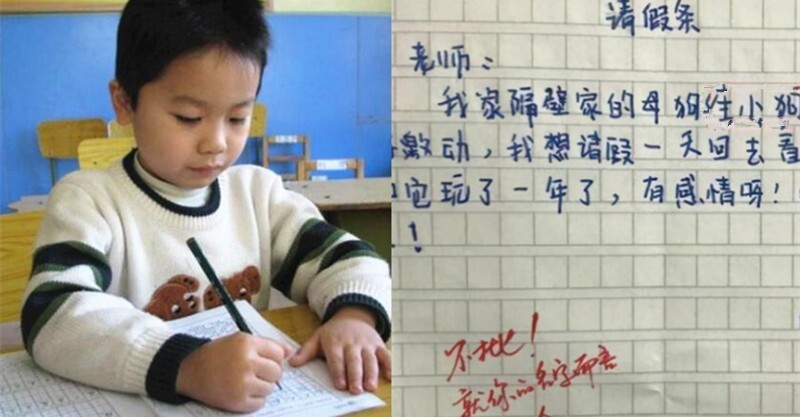 请假条
老师：
我家隔壁家的母狗生小狗
激动，我想请假一天回去看
它玩了一年了，有感情呀！
！
不批！
就你的名字而言